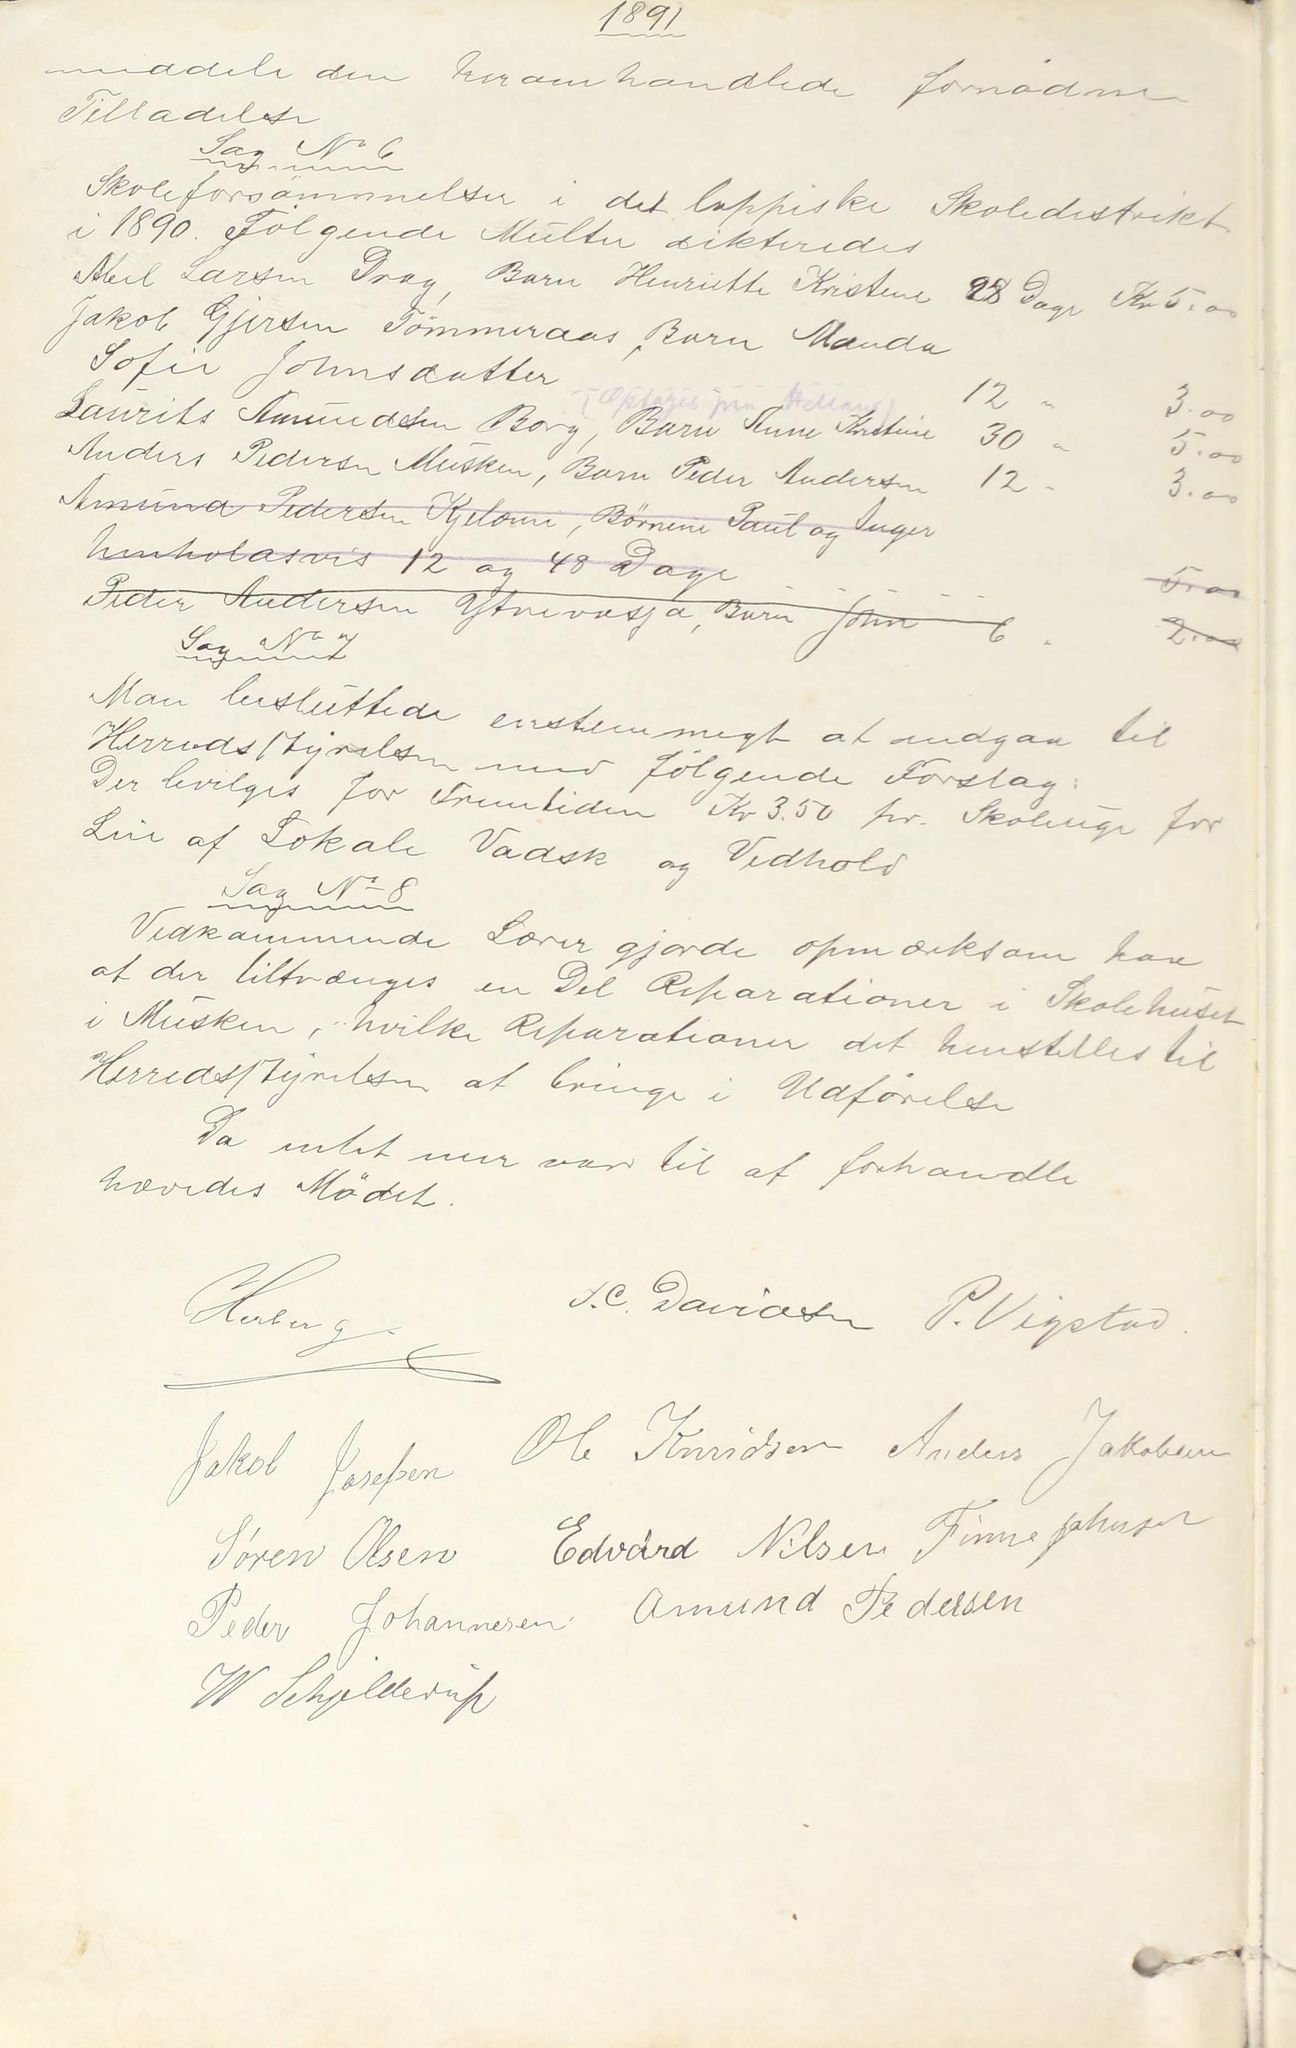 1891
meddele den heromhandlede fornødne
Tilladelse
Sag No 6
Skoleforsömmelser i det lappiske Skoledistrikt
i 1890. Fölgende Mulkter dikteredes
Abel Larsen Drag, Barn Henriette Kristine 28 Dage Kr 5.00
Jakob Gjersen Tömmeraas, Barn Manda
Sofie Johnsdatter 12 " 3.00
Laurits Amundsen Borg, Barn Anne Kristine 30 " 5.00
Anders Pedersen Musken, Barn Peder Andersen 12 " 3.00
Amund Pedersen Kjelvmi, Börnene Paul og Inger
henholdsvis 12 og 48 Dage 5.00
Peder Andersen Ytrevasja, Barn John 6 " 2.00
Sag No 7
Man besluttede enstemmigt at andgaa til
Herredsstyrelsen med fölgende Forslag:
Der bevilges for Fremtiden Kr 3.50 pr. Skoleuge for
Leie af Lokale Vadsk og Vedhold
Sag No 8
Vedkommende Lærer gjorde opmærksom paa
at der tiltrænges en Del Reparationer i Skolehuset
i Musken, hvilke Reparationer det henstilles til
Herredsstyrelsen at bringe i Udförelse
Da intet mer var til at forhandle
hævedes Mödet.
Herberg
J.C. Davidsen P. Vigstad.
Jakob Josefsen Ole Knudsen Anders Jakobsen
Søren Olsen Edvard Nilsen Finne Johnsen
Peder Johannesen Amund Pedersen
W Schjelderup